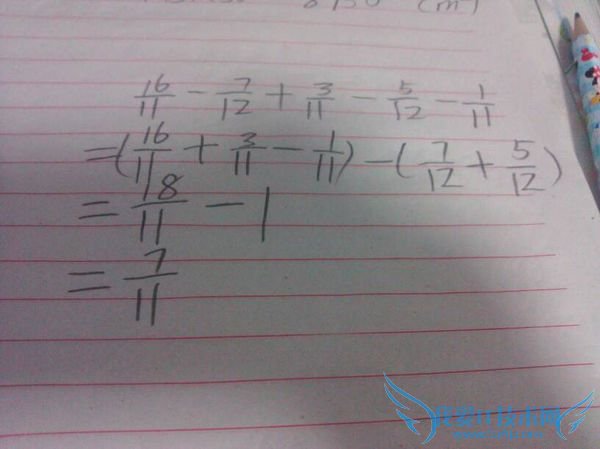 16/11 - 7/12 + 3/11 - 5/12 - 1/11
= (16/11 + 3/11 - 1/11) - (7/12 + 5/12)
= 18/11 - 1
= 7/11